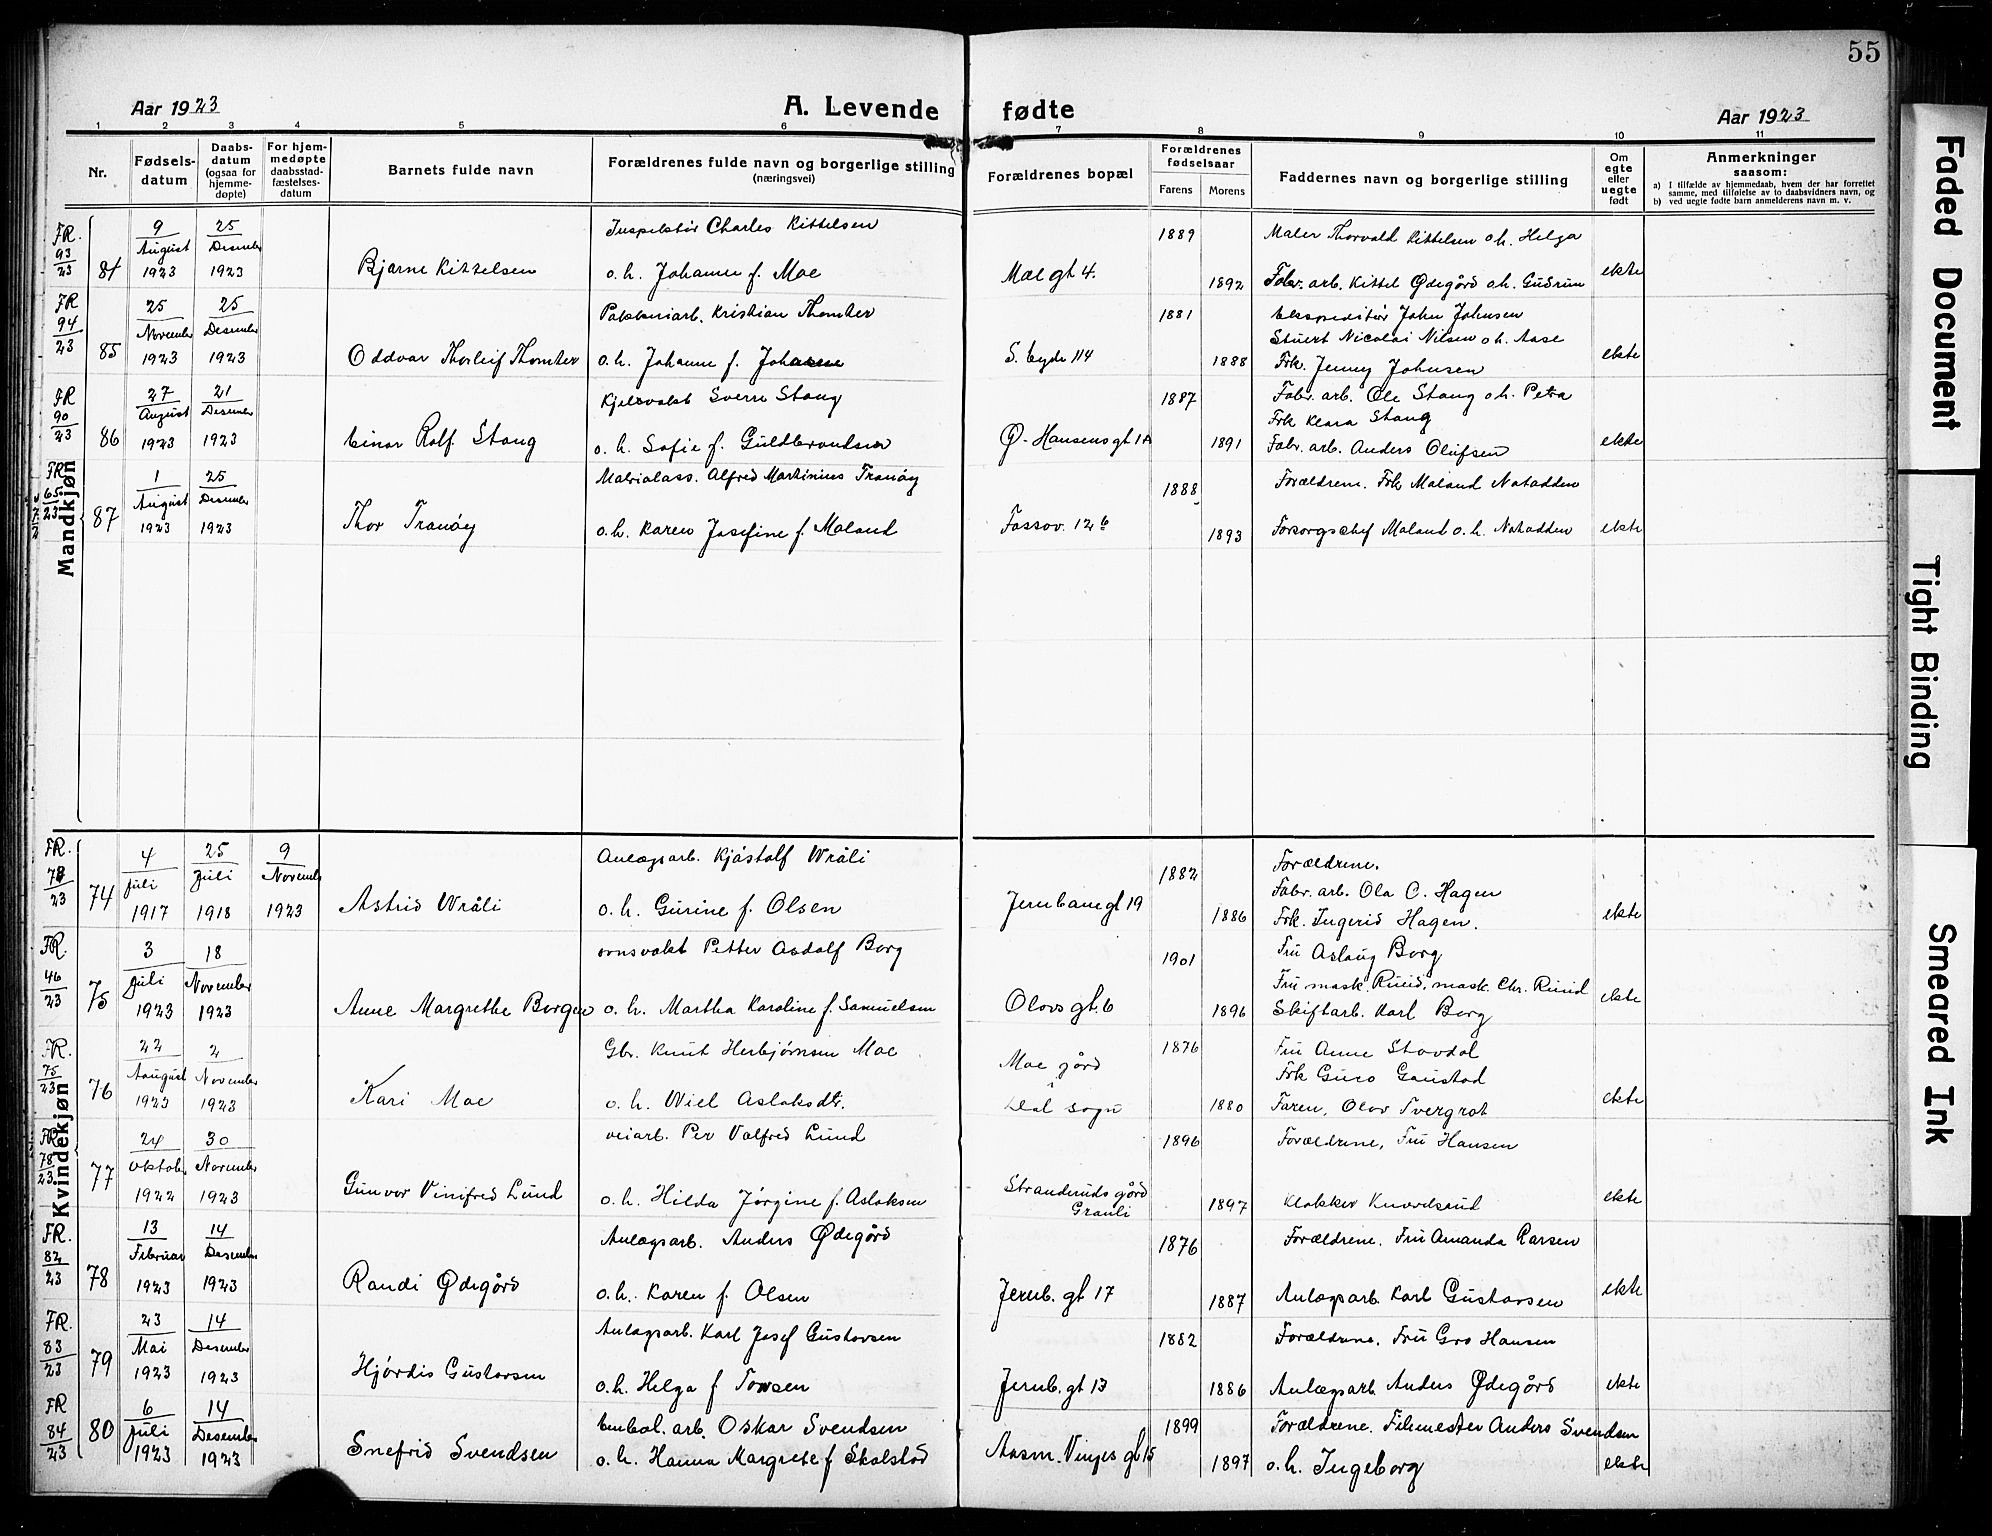 55
Aar 1923
A. Levende fødte
Aar 1923
1 2 3 4 5 6 7 8 9 10 11
Nr.
Fødsels-
datum
Daabs-
datum
(ogsaa for
hjemme-
døpte)
For hjem-
medøpte
daabsstad-
fæstelses-
datum
Barnets fulde navn
Forældrenes fulde navn og borgerlige stilling
(næringsvei)
Forældrenes bopæl
Forældrenes
fødselsaar
Farens Morens
Faddernes navn og borgerlige stilling
Om
egte
eller
uegte
født
Anmerkninger
saasom:
a) I tilfælde av hjemmedaab, hvem der har forrettet
samme, med tilføielse av to daabsvidners navn, og
b) ved uegte fødte barn anmelderens navn m. v.
Mandkjøn
FR. 9 25 Inspektør Charles Kittelsen 1889 Maler Thorvald Kittelsen o.h. Helga
93/23 August Desember
84 1923 1923 Bjarne Kittelsen o.h. Johanne f. Moe Moe gt 4. 1892 Fabr. arb. Kittel Ødegård o.h. Gudrun ekte
FR 25 25 Pakkeriarb. Kristian Thomter 1881 Ekspeditør John Johnsen
94/23 November Desember Stuert Nicolai Nilsen o.h. Aase
85 1923 1923 Oddvar Thorleif Thomter o.h. Johanne f. S. byde 114 1888 Frk. Jenny Johnsen ekte
FR 27 21 Kjelsvakt Sverre Stang 1887 Fabr. arb. Ole Stang o.h. Petra
90/23 August Desember Frk Klara Stang
86 1923 1923 Einar Rolf Stang o.h. Sofie f. Guldbrandsen Ø. Hansens gt 1A 1891 Fabr. arb. Anders Olufsen ekte
FR 1 25 Matrialass. Alfred Martinius Tranøy 1888 Forældrene. Frk Maland Notodden
65/23 August Desember
87 1923 1923 Thor Tranøy o.h. Karen Josefine f. Maland Fossov. 12 b 1893 Forsorgschef Maland o.h. Notodden ekte
Kvindekjøn
FR. 4 25 9 Anlægsarb. Kjøstolf Wråli 1882 Forældrene.
78/23 Juli Juli November Fabr. arb. Ola C. Hagen
74 1917 1918 1923 Astrid Wråli o.h. Gurine f. Olsen Jernbanegt 19 1886 Frk. Ingerid Hagen. ekte
FR. 3 18 ovnsvakt Petter Asdolf Borg 1901 Fru Aslaug Borg
46/23 Juli November Fru mask. Ruud, mask. Chr. Ruud
75 1923 1923 Anne Margrethe Borgen o.h. Martha Karoline f. Samuelsen Olovs gt. 6 1896 Skiftarb. Karl Borg ekte
FR. 22 2 Gbr. Knut Herbjørnsen Moe 1876 Fru Anne Stovdal
75/23 August November Moe gård Frk Guro Gaustad
76 1923 1923 Kari Moe o.h. Wiel Aslaksdtr. Dal sogn 1880 Faren, Olov Tvergrot ekte
FR 24 30 veiarb. Per Valfred Lund 1896 Forældrene, Fru Hansen
78/23 Oktober November
77 1922 1923 Gunvor Vinifred Lund o.h. Hilda Jørgine f. Aslaksen Stranderuds gård 1897 Klokker Knardsrud ekte
Grauli
FR. 13 14 Anlægsarb. Anders Ødegård 1876 Forældrene. Fru Amanda Larsen
82/23 Februar Desember
78 1923 1923 Randi Ødegård o.h. Karen f. Olsen Jernb. gt 17 1887 Anlægsarb. Karl Gustavsen ekte
FR. 23 14 Anlægsarb. Karl Josef Gustavsen 1882 Forældrene. Fru Gro Hansen
83/23 Mai Desember
79 1923 1923 Hjørdis Gustavsen o.h. Helga f Torsen Jernb. gt 13 1886 Anlægsarb Anders Ødegård ekte
FR 6 14 Embal. arb. Oskar Svendsen 1899 Forældrene. Filemester Anders Svendsen
84/23 Juli Desember
80 1923 1923 Snefrid Svendsen o.h. Hanna Margrete f Skolstad Aasm. Vinjes gt 15 1897 o.h. Ingeborg ekte
Faded Document
Tight Binding
Smeared Ink